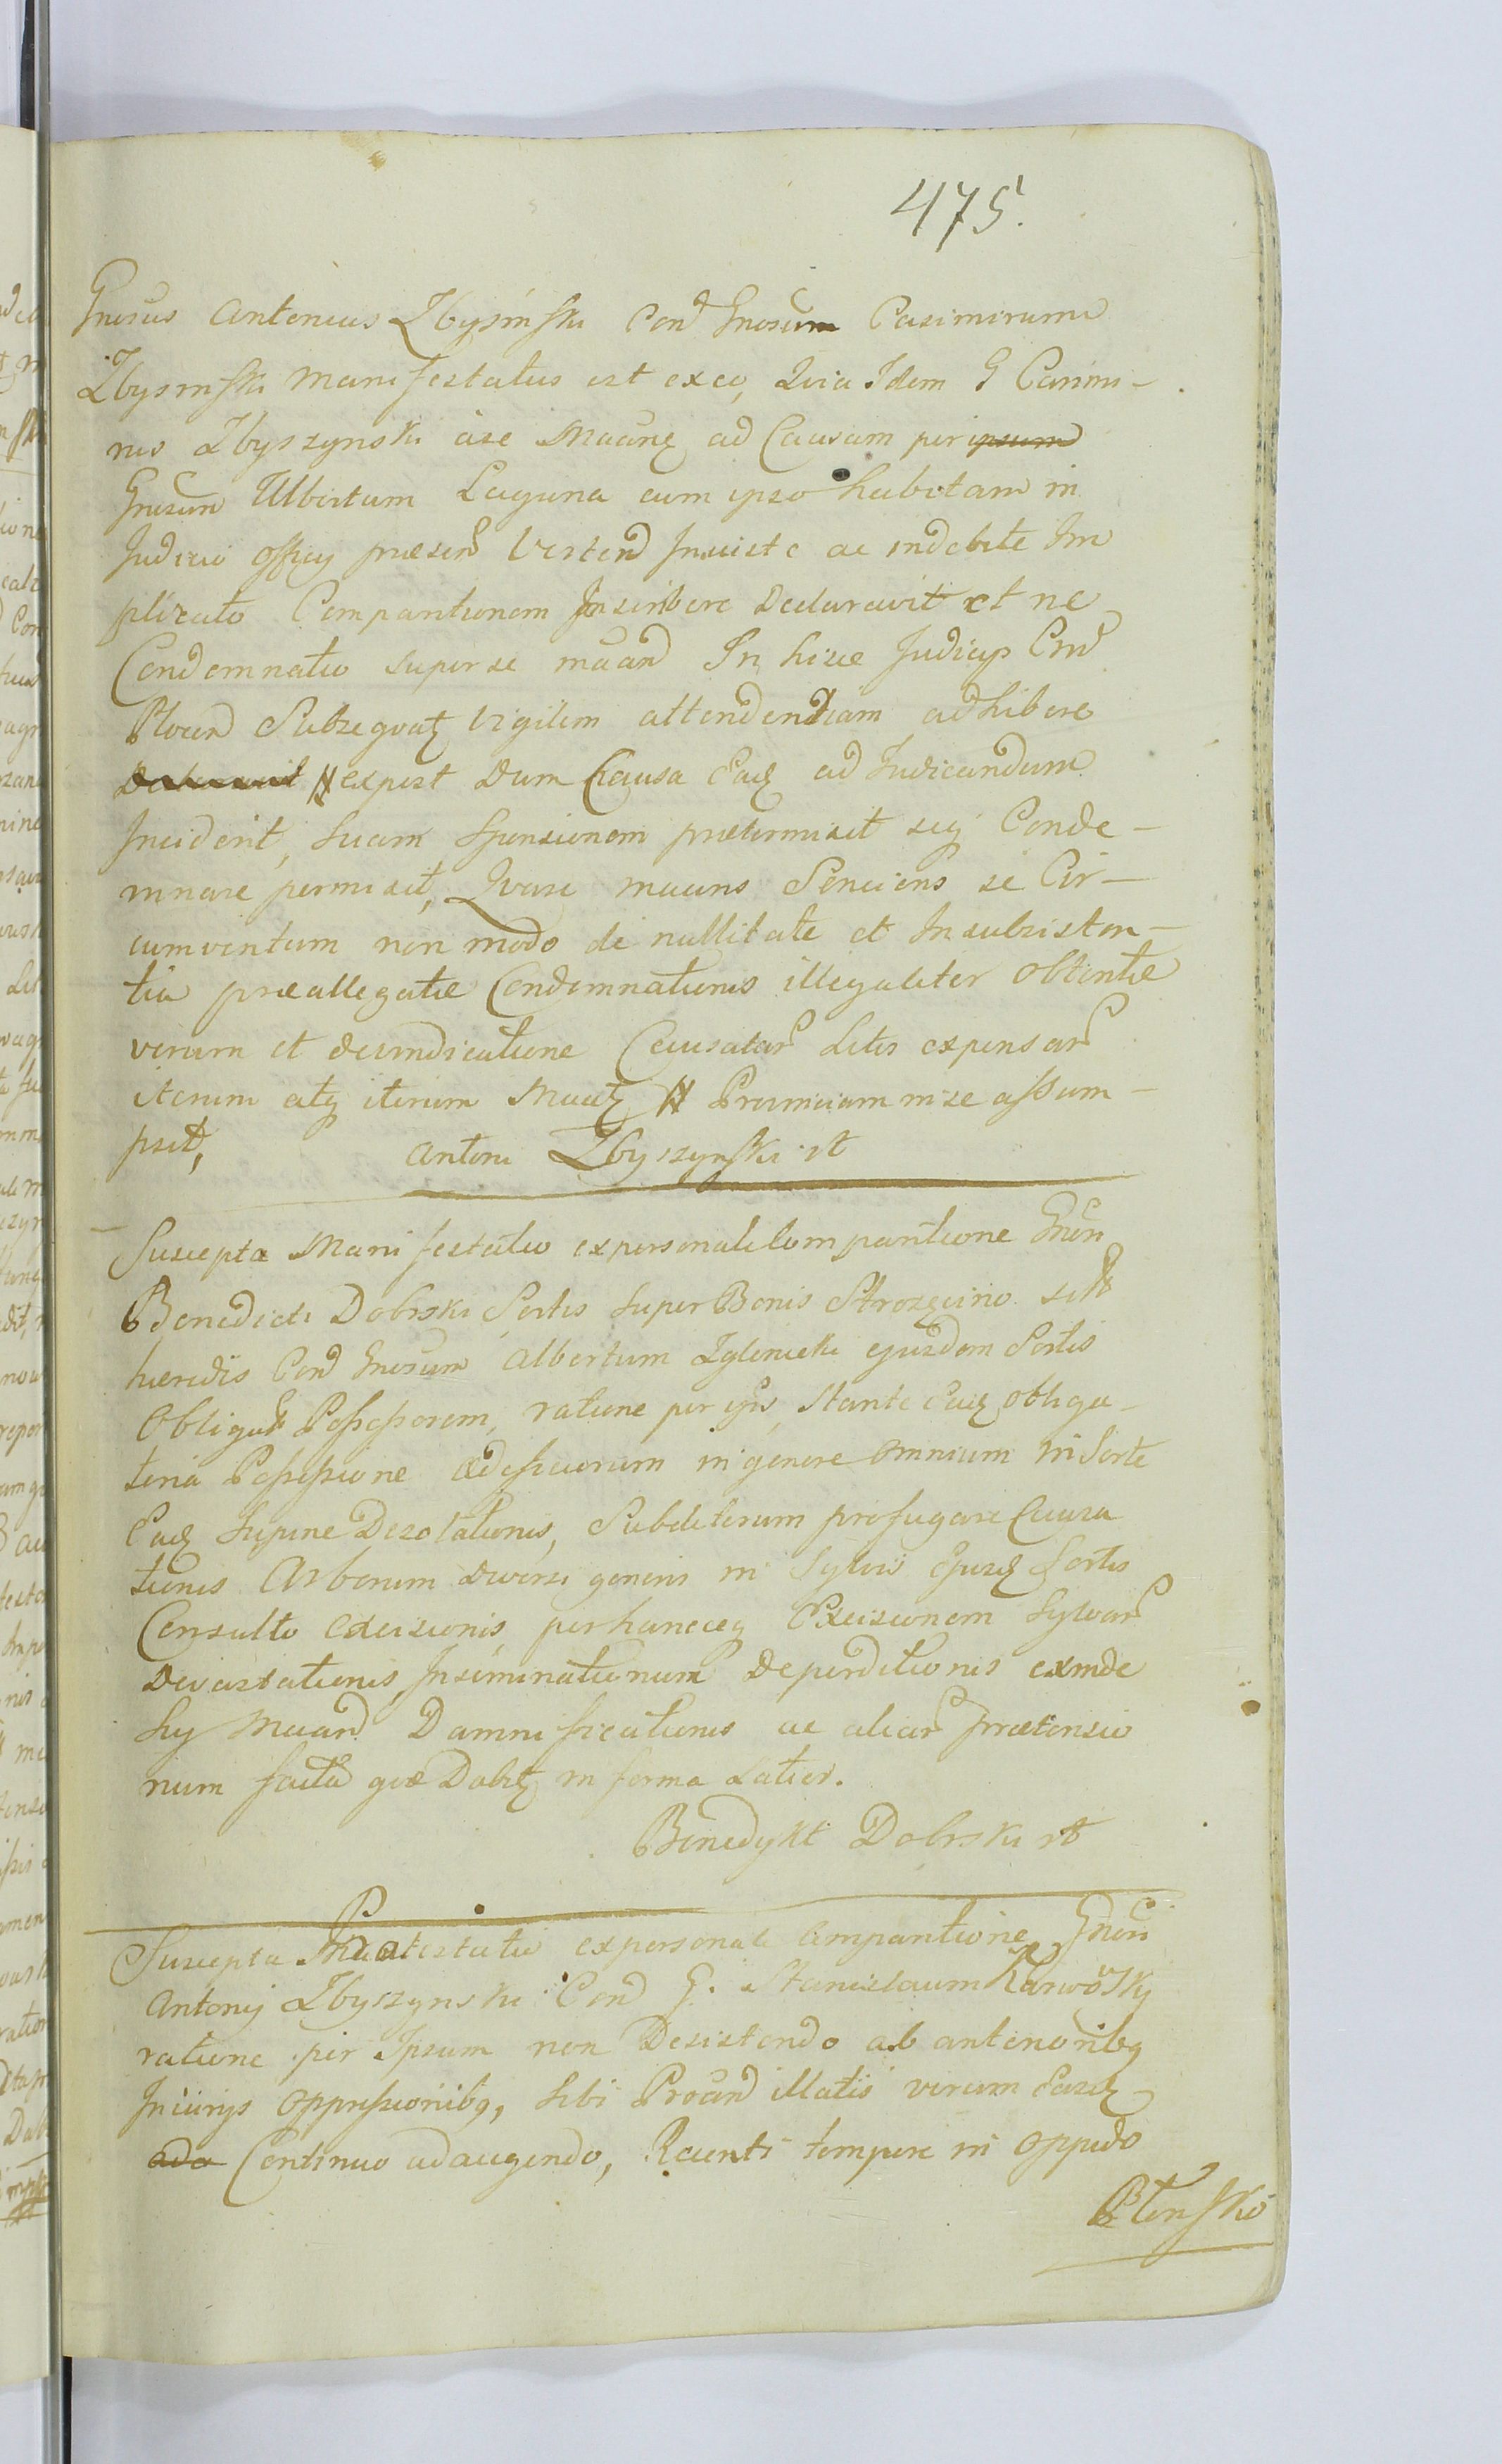 475.
Gnosus Antonius Zbysinski Cond Gnosum Casimirum
Zbysinski manifestatus est exeo, Quia Idem G Casimi-
rus Zbyszynski a se Maane ad Causam per ipsum
Gnosum Albertum Laguna cum ipso habitam in
Judicio Officij praesen Vertend Iniuste ac indebite Im
plicato Comparitionem Inscribere Declaravit et ne
Condemnatio super se maand In hisce Judicijs Cnd
Plocen Subsequat vigilem attendentiam adhibere
expost Dum Causa Ead ad Judicandum
Inciderit, suam sponsionem praetermisit seq Conde-
mnare permisit, Quare maans Senciens se Cir-
cumventum non modo de nullitate et Insubsisten-
tia praeallegatae Condemnationis illegaliter obtentae
verum et devindicatione Causatar Litis expensar
iterum atq iterum Maat Provinciam in se assum-
psit, Antoni Zbyszynski st
Suscepta Manifestatio ex personali Comparitione Gnosi
Benedicti Dobrski Sortis super Bonis Strozęcino sitt
haeredis Cond Gnosum Albertum Zglinicki ejusdem Sortis
Obligat Possessorem, ratione per ipsi, stante Ead obliga-
toria Possessione aedificiorum in genere omnium in Sorte
Ead supine Desolationis, Subditorum profugare Causa
tionis Arborum diversi generis in Sylvis Ejusd Sortis
Consulto excisionis, per hancceq Excisionem Sylvar
Devastationis, Inseminationum Deperditionis exinde
sui Maand Damnificationis ac aliar praetensio
num facta quae Dabit in forma Latior.
Benedykt Dobrski st
Suscepta Manifestatio ex personali Comparitione Gnosi
Antonij Zbyszynski Cond G. Stanislaum Karwosky
ratione per Ipsum non Desistendo ab anterioribq
Iniurijs oppressionibq, sibi Proand illatis verum Easd
ada Continuo adaugendo, Recenti tempore in oppido
Płonsko